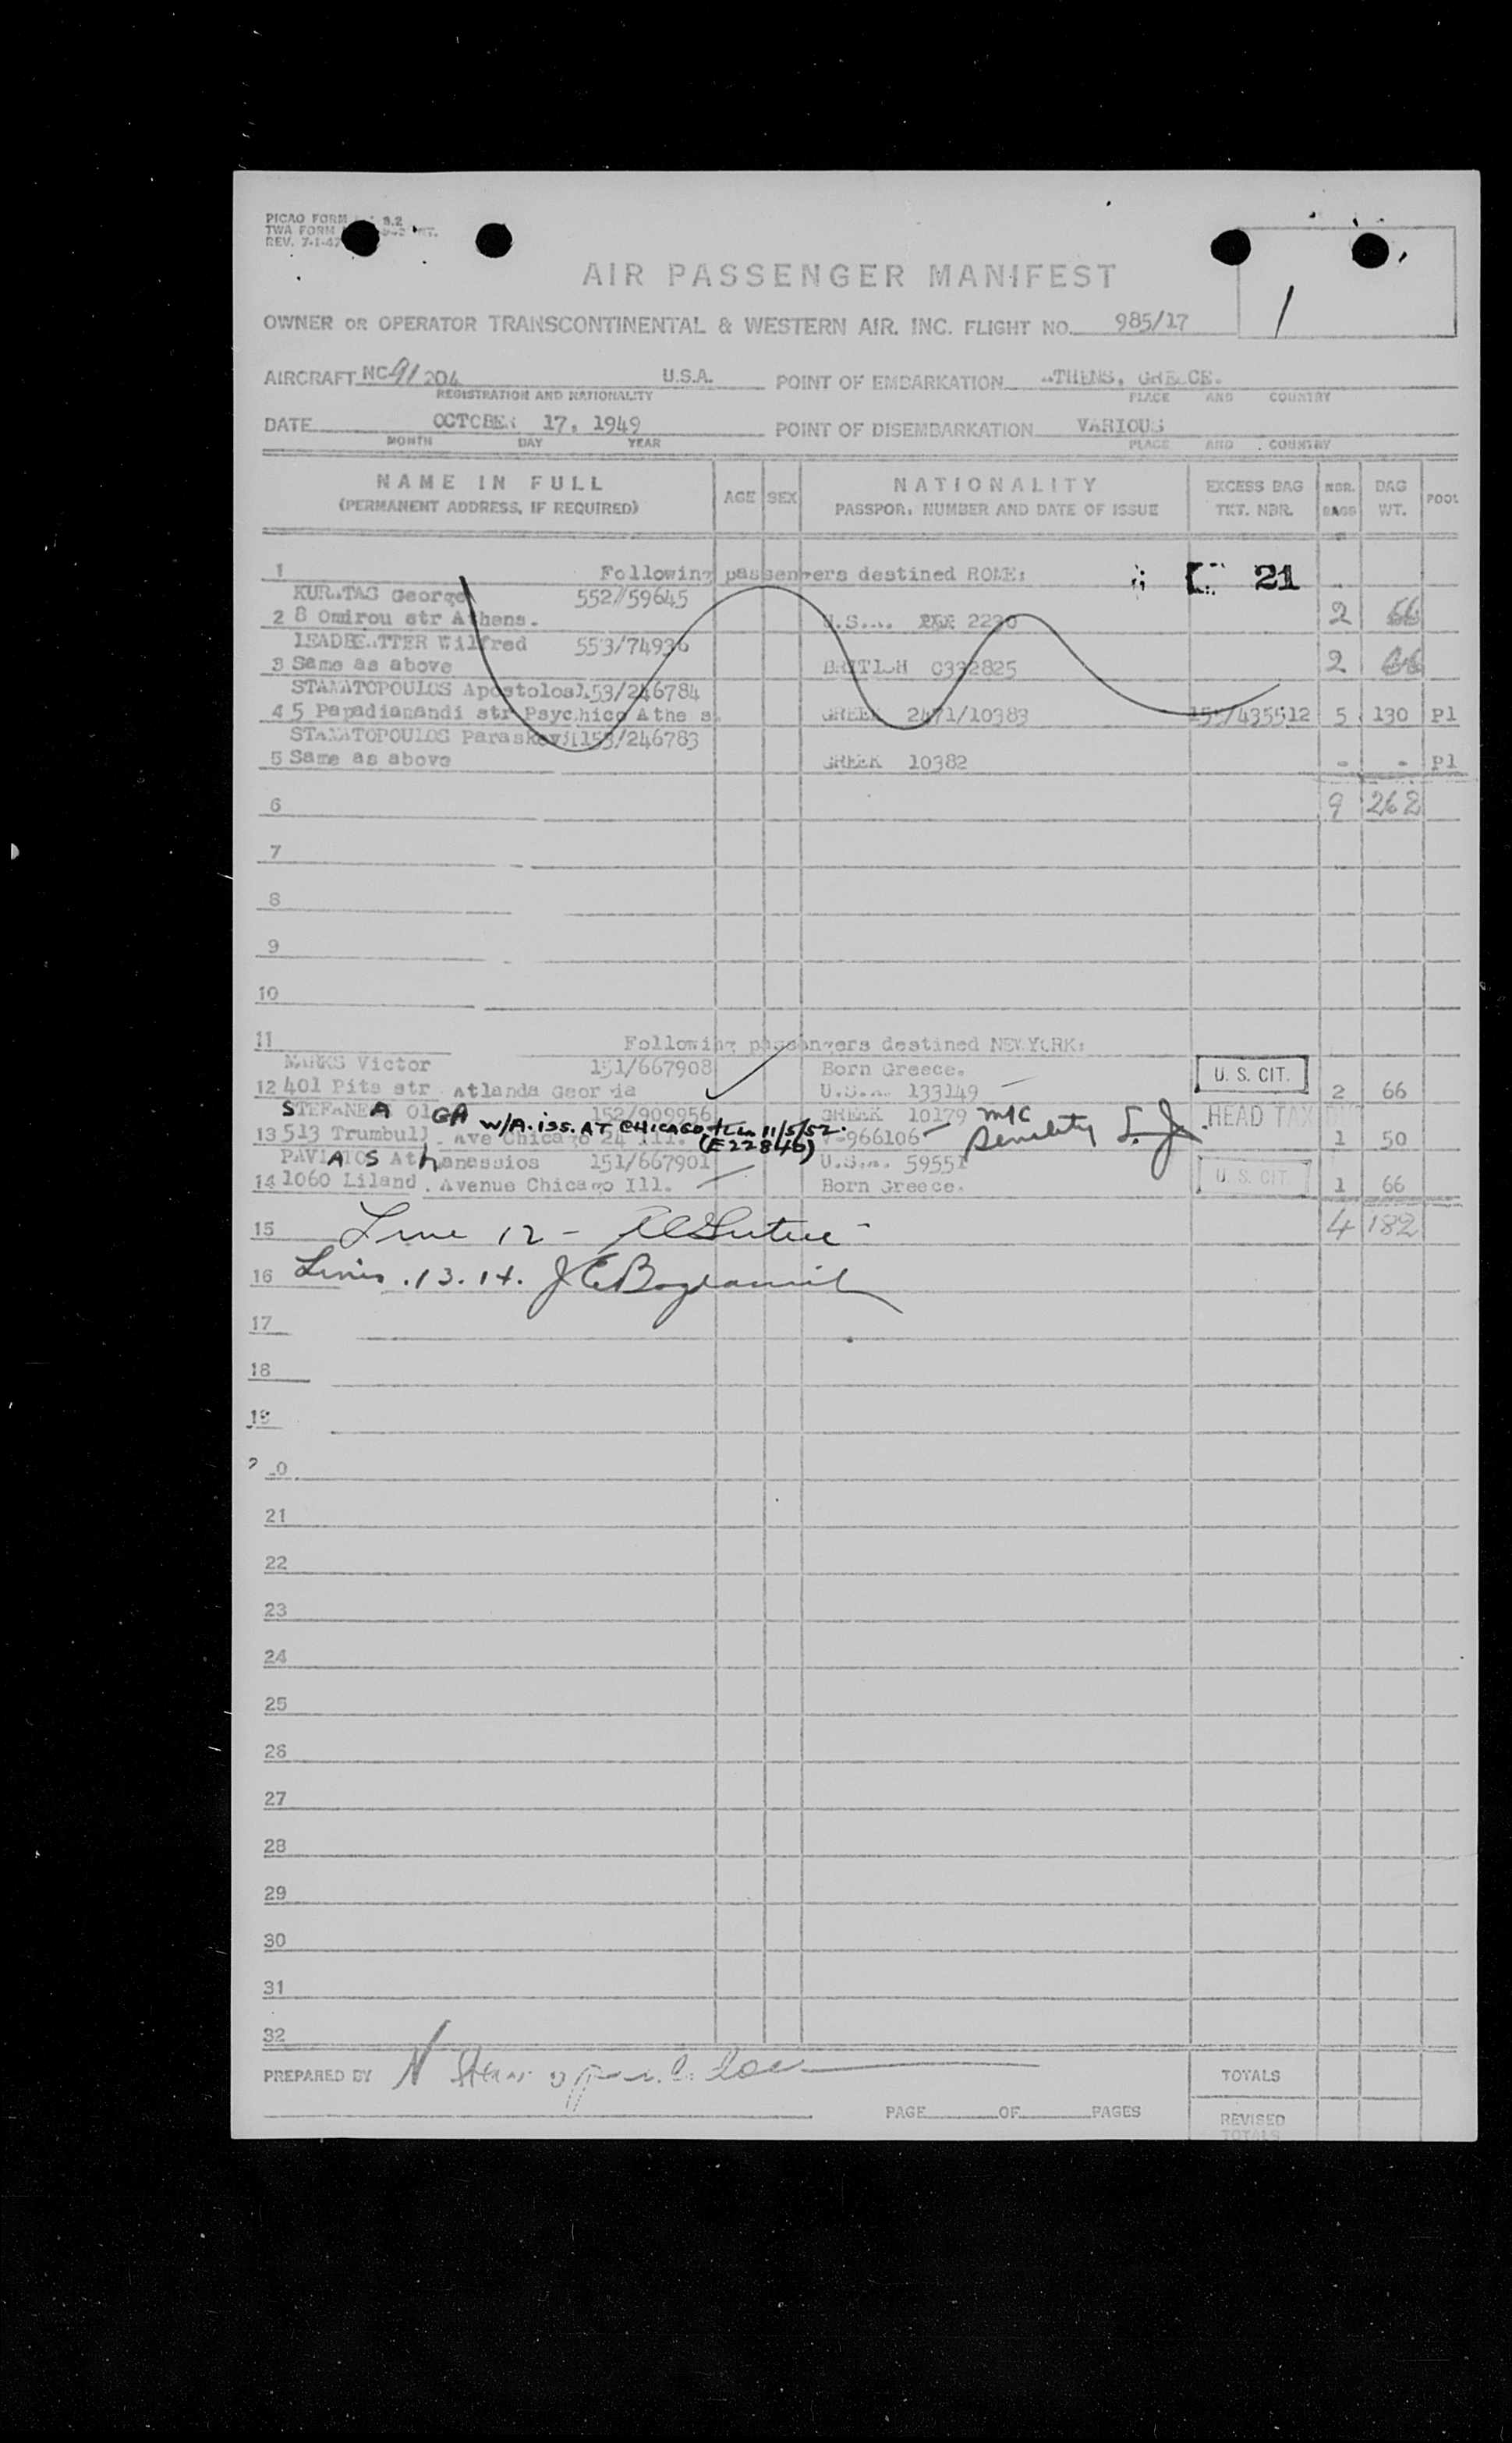 PICAO FORM 3.2
TWA FORM
REV. 7-1-47
AIR PASSENGER MANIFEST
1
OWNER OR OPERATOR TRANSCONTINENTAL & WESTERN AIR. INC. FLIGHT NO. 985/17
AIRCRAFT NC-91204 U.S.A. POINT OF EMBARKATION ATHENS, GREECE.
REGISTRATION AND NATIONALITY PLACE AND COUNTRY
DATE OCTOBER 17, 1949 POINT OF DISEMBARKATION VARIOUS
MONTH DAY YEAR PLACE AND COUNTRY
NAME IN FULL AGE SEX NATIONALITY EXCESS BAG NBR. BAG POOL
(PERMANENT ADDRESS, IF REQUIRED) PASSPORT NUMBER AND DATE OF ISSUE TKT. NBR. BAGS WT.
1 Following passengers destined ROME: 21
KURATAG George 552/59645
2 8 Omirou str Athens. U.S.A. 2230 2 66
LEADBEATTER Wilfred 553/74936
3 Same as above BRITISH C332825 2 66
STAMATOPOULOS Apostolos 153/246784
4 5 Papadianandi str Psychico Athe s. GREEK 2471/10383 155/435512 5 130 Pl
STAMATOPOULOS Paraskevi 153/246783
5 Same as above GREEK 10382 - - Pl
6 9 262
7
8
9
10
11 Following passengers destined NEW YORK:
MARKS Victor 151/667908 Born Greece. U. S. CIT.
12 401 Pits str. Atlanda Georgia U.S.A. 133149 2 66
STEFANEA OlGA 152/909956 GREEK 10179 HEAD TAX
W/A. iss. AT CHICAGO 11/5/52.
13 513 Trumbull. Ave Chicago 24 Ill. (E22840) V-966106 1 50
PAVLATOS Athanessios 151/667901 U.S.A. 59551 U. S. CIT.
A S h
14 1060 Liland. Avenue Chicago Ill. Born Greece. 1 66
15 Line 12 - 4 182
16 Lines .13.14.
17
18
19
20
21
22
23
24
25
26
27
28
29
30
31
32
PREPARED BY N TOTALS
PAGE OF PAGES REVISED
TOTALS